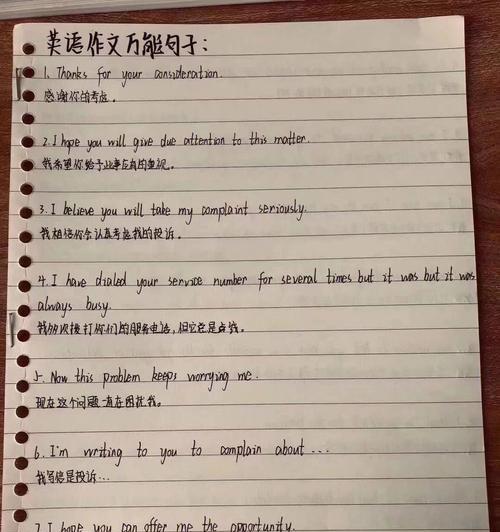 英语作文万能句子：
1. Thanks for your consideration.
感谢你的考虑。
2. I hope you will give due attention to this matter.
我希望你给予此事应有的重视。
3. I believe you will take my complaint seriously.
我相信你会认真考虑我的投诉。
4. I have dialed your service number for several times but it was but it was
always busy.
我多次拨打你们的服务电话，但它总是占线。
5. Now this problem keeps worrying me.
现在这个问题一直在困扰我。
6. I'm writing to you to complain about ...
我写信是投诉...
7. I hope you can offer me the opportunity.